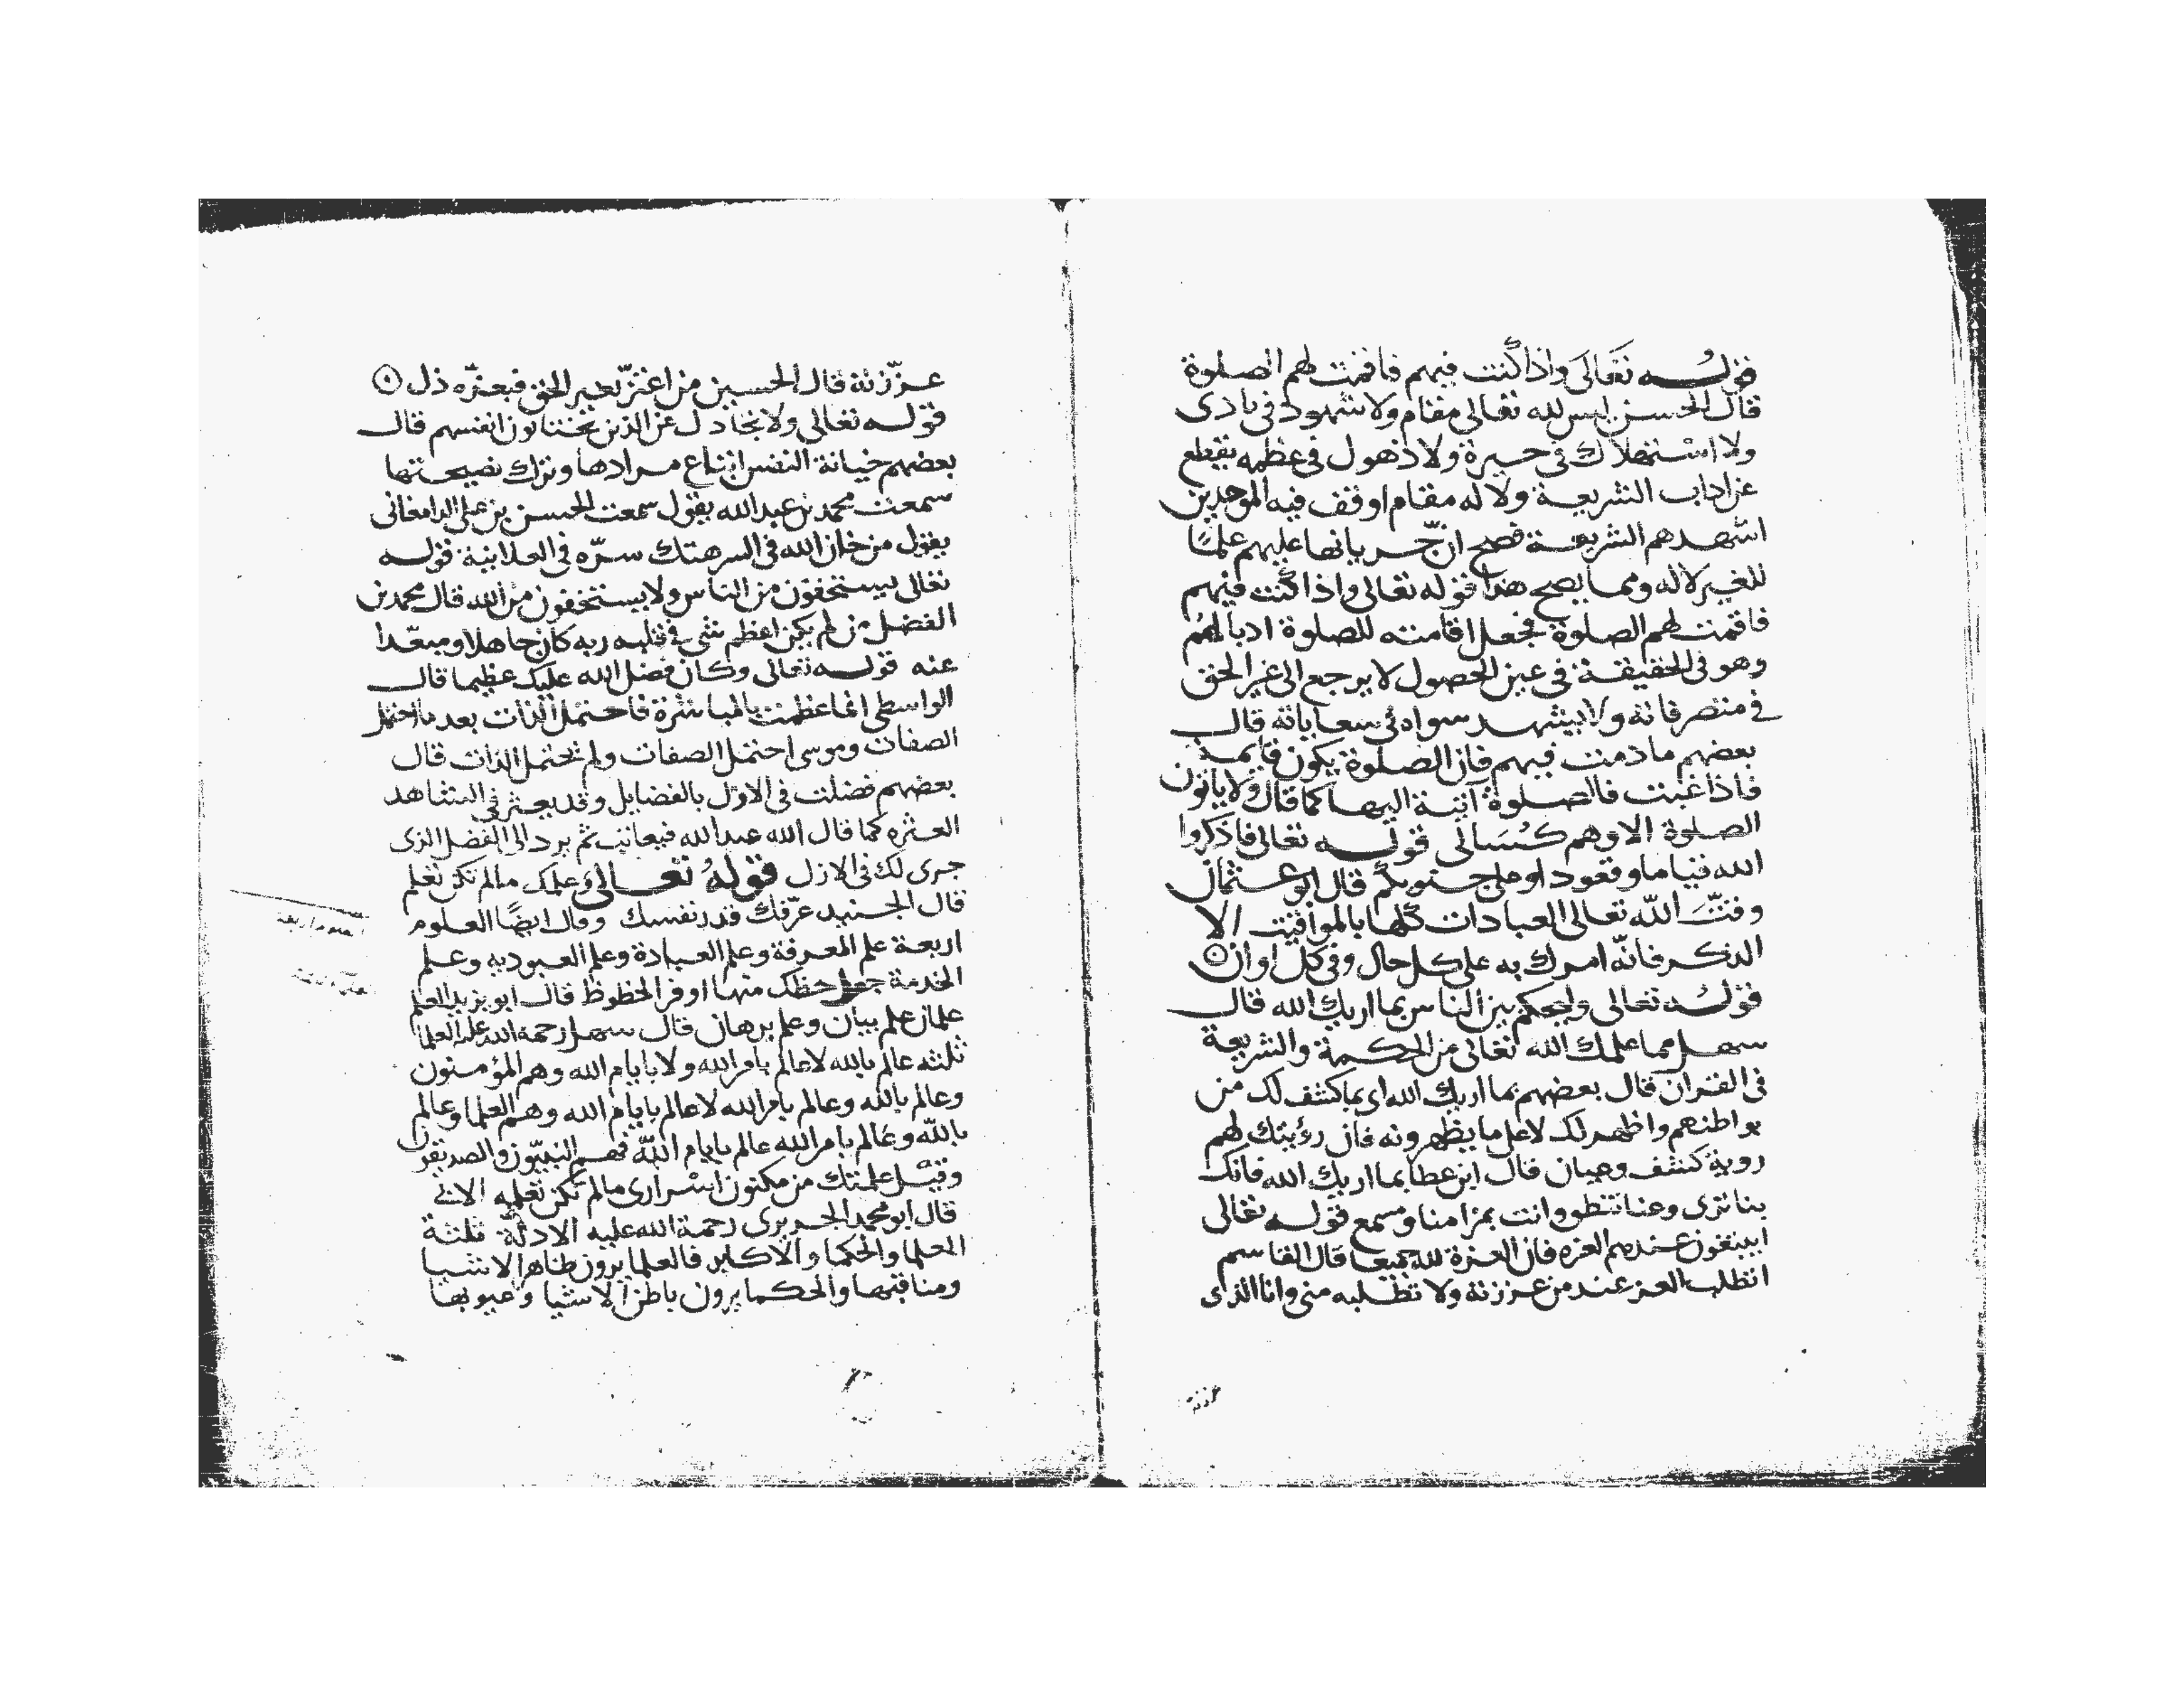 قوله تعالى واذا كنت فيهم فاقمت لهم الصلوة
قال الحسن ليس لله تعالى مقام ولا شهود في بادى
ولا استهلاك في حيرة ولا ذهول في عظمه يقطع
عن اداب الشريعة ولا له مقام اوقف فيه الموحدين
اشهدهم الشريعة فصح ان جريانها عليهم علمًا
للغير لا له ومما يصح هذا قوله تعالى واذا كنت فيهم
فاقمت لهم الصلوة فجعل اقامته للصلوة ادبا لهم
وهو في الحقيقة في عين الحصول لا يرجع الى غير الحق
في متصرفاته ولا يشهد سواه في سعاياته قال
بعضهم ما دمت فيهم فان الصلوة يكون قايمة
فاذا غبت فالصلوة آتية اليها كما قال ولا ياتون
الصلوة الا وهم كُسَالى قوله تعالى فاذكروا
الله قياما وقعودا وعلى جنوبكم قال ابو عثمان
وقّت الله تعالى العبادات كلها بالمواقيت الا
الذكر فانّه امرك به على كل حال وفي كل اوان
قوله تعالى وليحكم بين الناس بما اريك الله قال
سهل مما علمك الله تعالى من الحكمة والشريعة
في القران قال بعضهم بما اريك الله اى بما كشف لك من
بواطنهم واظهر لك لا على ما يظهرونه فان رؤيتك لهم
روية كشف وعيان قال ابن عطا بما اريك الله فانك
بنا ترى وعنا تنطق وانت بمرا منا ومسمع قوله تعالى
ايبتغون عندهم العزه فان العزة لله جميعا قال القاسم
اتطلب العز عند من عززته ولا تطلبه مني وانا الذى
عزّزته قال الحسين من اعتزّ بغير الحق فبعزّه ذل
قوله تعالى ولا تجادل عن الذين يختانون انفسهم قال
بعضهم خيانة النفس اتباع مرادها وترك نصيحتها
سمعت محمد بن عبد الله يقول سمعت الحسن بن على الدامغانى
يقول من خان الله في السر هتك سرّه في العلانية قوله
تعالى يستخفون من الناس ولا يستخفون من الله قال محمد بن
الفضل من لم يكن اعظم شى في قلبه ربه كان جاهلا ومبعّدا
عنه قوله تعالى وكان فضل الله عليك عظيما قال
الواسطى انما عظمت بالمباشرة فاحتمل الذات بعد ما احتمل
الصفات وموسى احتمل الصفات ولم يحتمل الذات قال
بعضهم فضلت في الاول بالفضايل وقد يعثر في المشاهد
العثره كما قال الله عبد الله فيعاتب ثم يرد الى الفضل الذى
جرى لك في الازل قوله تعالى وعلمك ما لم تكن تعلم
قال الجنيد عرّفك قدر نفسك وقال ايضًا العلوم
اربعة علم المعرفة وعلم العبادة وعلم العبودية وعلم
الخدمة جعل حظك منها اوفر الحظوظ قال ابو يزيد العلم
علمان علم بيان وعلم برهان قال سهل رحمة الله عليه العلما
ثلثه عالم بالله لا عالم بامر الله ولا بايام الله وهم المؤمنون
وعالم بالله وعالم بامر الله لا عالم بايام الله وهم العلما وعالم
بالله وعالم بامر الله عالم بايام الله فهم النبيّون والصديقون
وقيل علمتك من مكنون اسرارى ما لم تكن تعلمه الا بي
قال ابو محمد الجريرى رحمة الله عليه الادلة ثلثة
العلما والحكما والاكابر فالعلما يرون ظاهر الاشيا
ومنافعها والحكما يرون باطن الاشيا وعيوبها